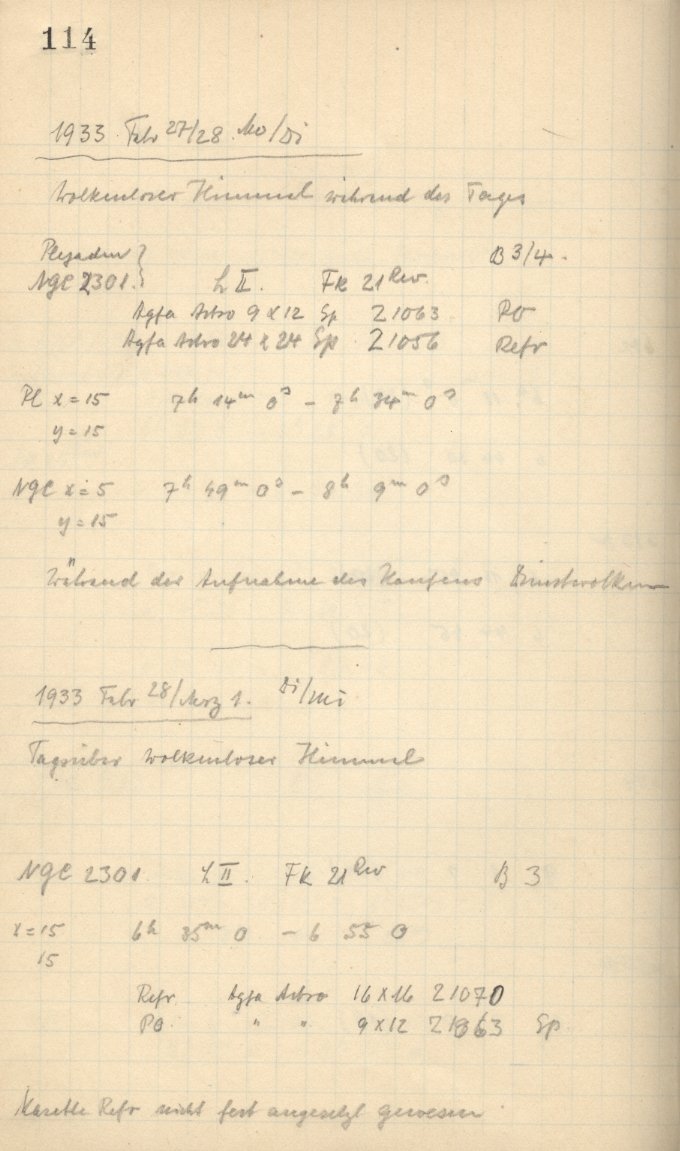 114
1933 Febr 27/28 Mo/Di
Wolkenloser Himmel während des Tages
Plejaden } B 3/4.
NGC 2301. L II. FK 21 Rev.
Agfa Astro 9 x 12 Sp Z 1063 PO
Agfa Astro 24 x 24 Sp Z 1056 Refr
Pl x = 15 7h 14m 0s – 7h 34m 0s
y = 15
NGC x = 5 7h 49m 0s – 8h 9m 0s
y = 15
Während der Aufnahme des Haufens Dunstwolken
1933 Febr 28/März 1. Di/Mi
Tagsüber wolkenloser Himmel
NGC 2301 L II. FK 21 Rev B 3
x = 15 6h 35m 0 – 6 55 0
15
Refr Agfa Astro 16 x 16 Z 1070
PO. " " 9 x 12 Sp
Kasette Refr nicht fest angesetzt gewesen